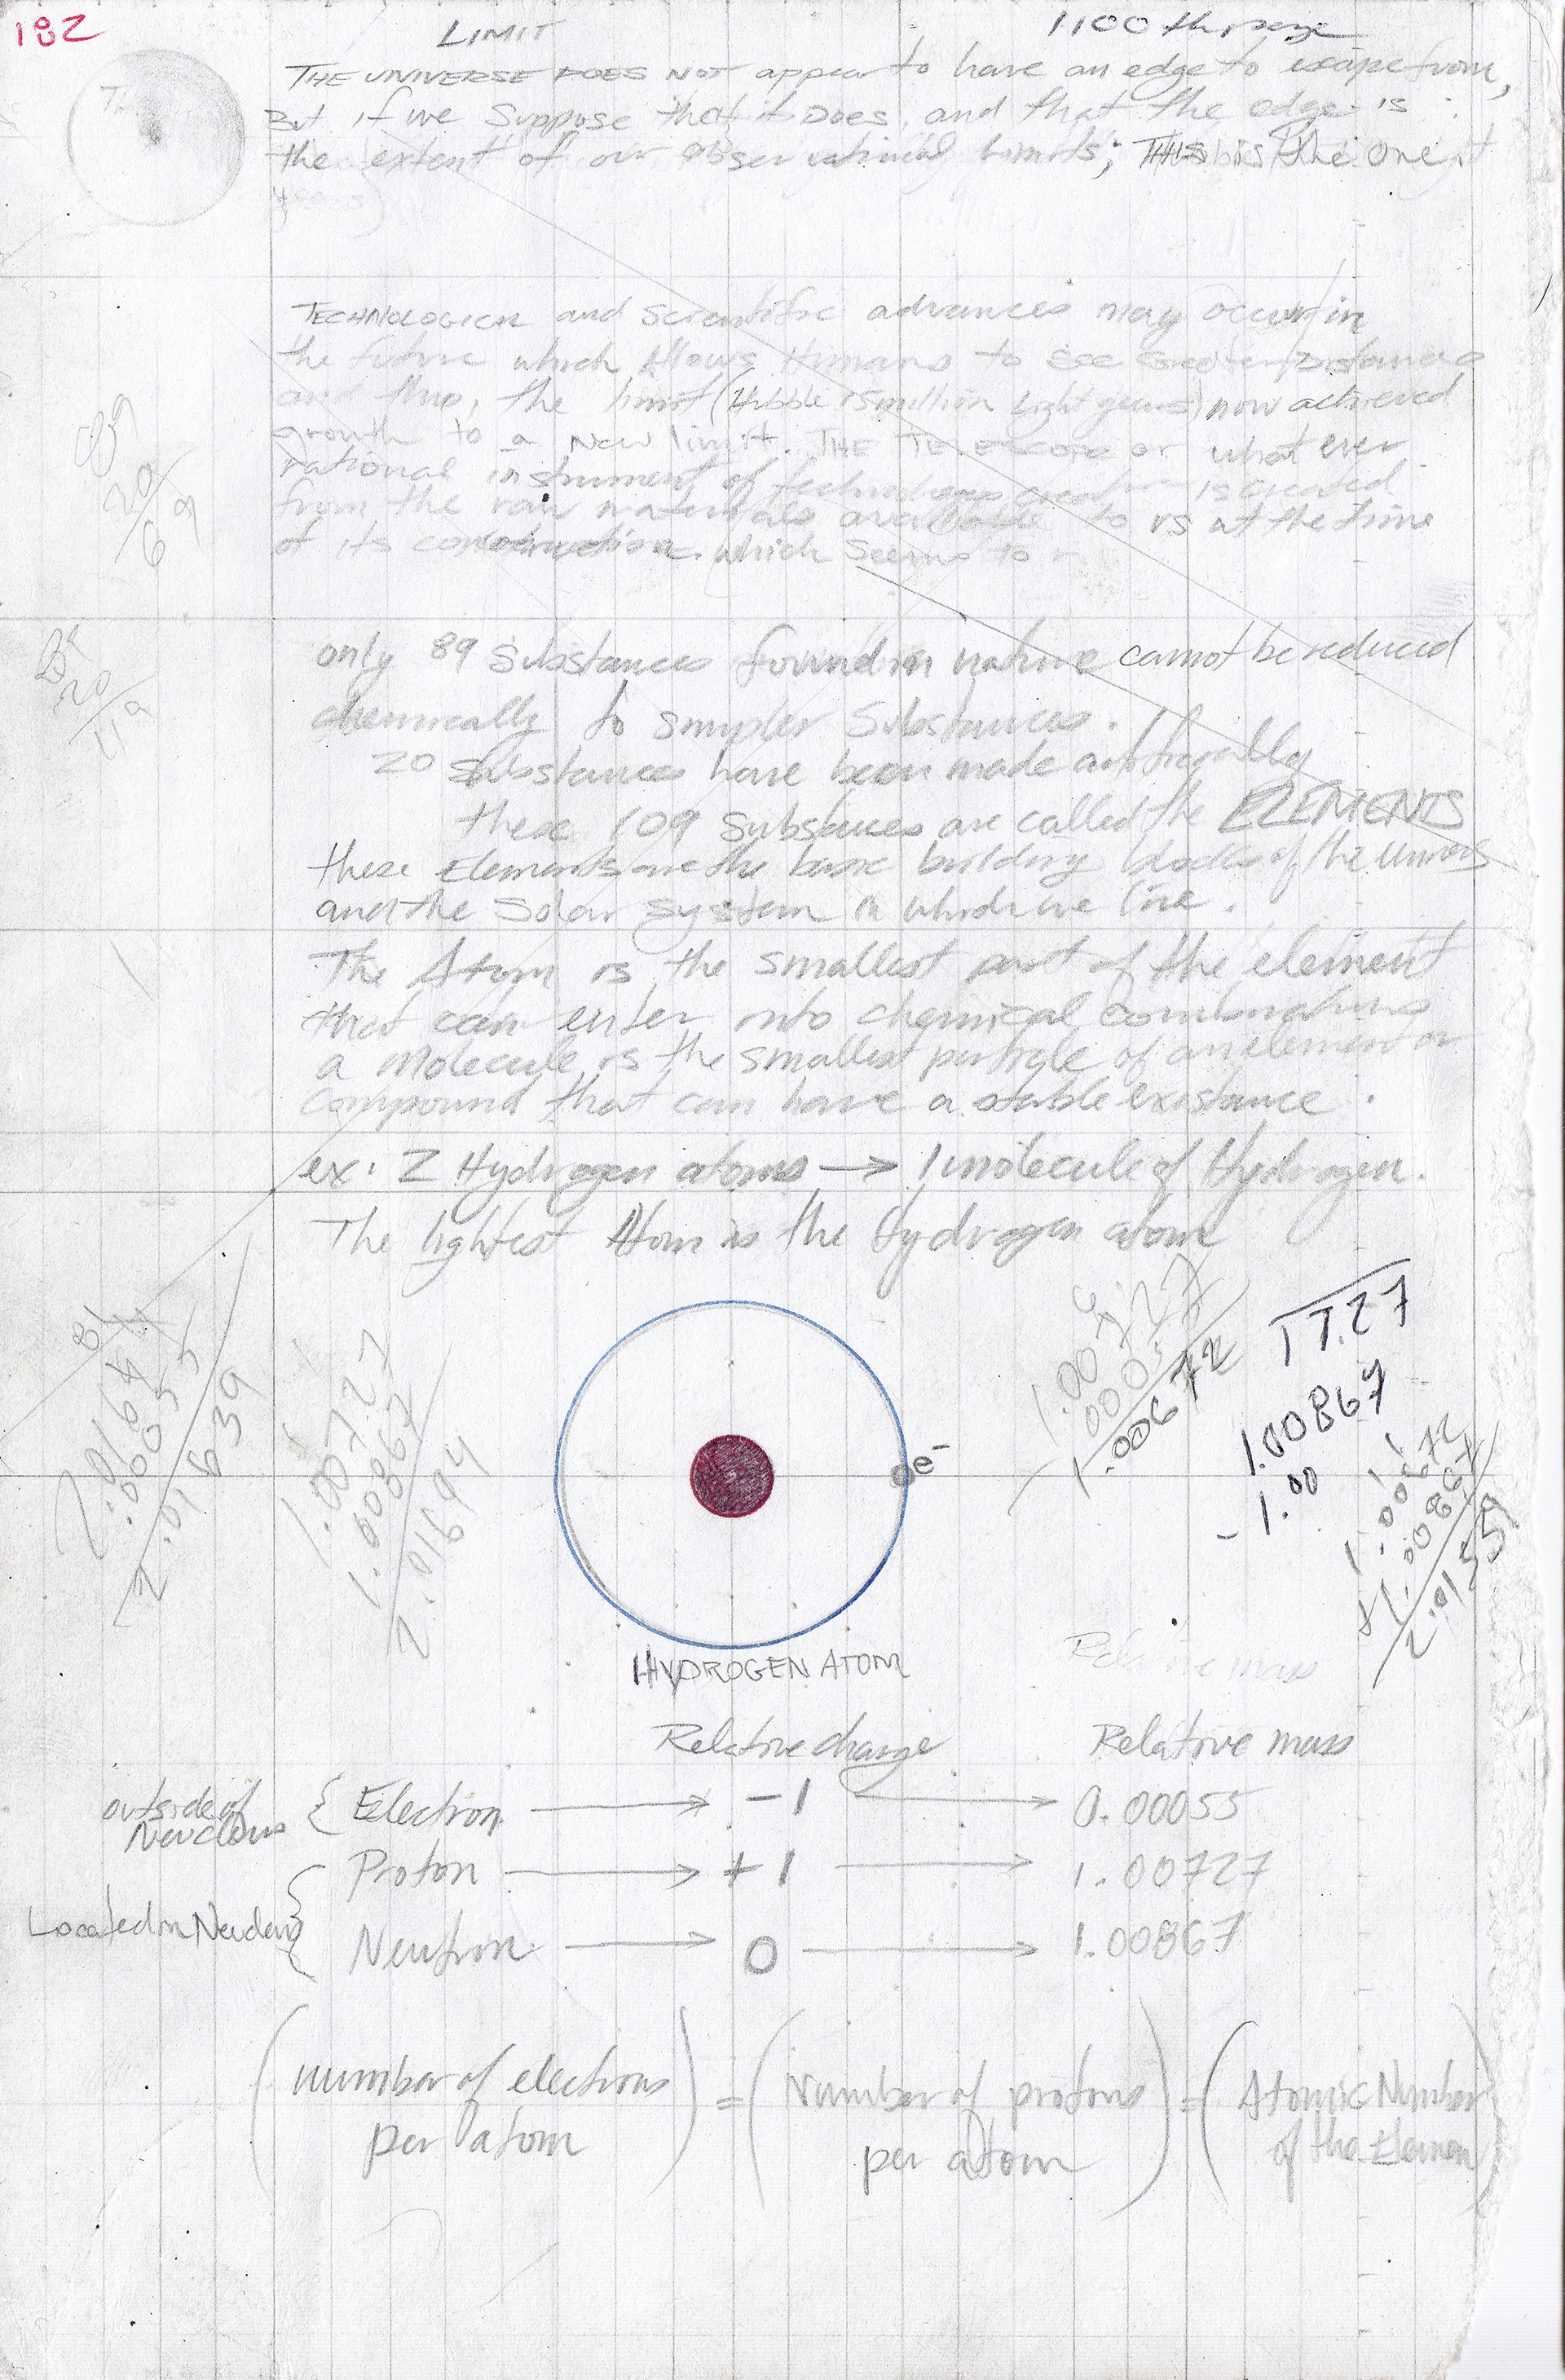 182
LIMIT
1100 th page
THE UNIVERSE DOES NOT appear to have an edge to escape from,
But if we suppose that it Does, and that the edge is
the extent of our observational limits; THIS is the one
years)
TECHNOLOGICAL and scientific advances may occur in
the future which Allows Humans to see Greater Distances
and thus, the limit (Hubble 15 million Light years) now achieved
growth to a New limit. THE TELESCOPE or what ever
rational instrument of technology is created
from the raw materials available to us at the time
of its construction. which seems to
89
20
69
89
20
119
only 89 Substances found in nature cannot be reduced
chemically to simpler Substances.
20 Substances have been made artifically
these 109 Substances are called the ELEMENTS
these Elements are the basic building blocks of the
and the Solar System in which we live.
The Atom is the smallest part of the element
that can enter into chemical combinations
a Molecule is the smallest particle of an element or
Compound that can have a stable existance.
ex: 2 Hydrogen atoms → 1 molecule of Hydrogen.
The lightest Atom is the Hydrogen atom
2.01639
1.00727
1.00867
2.01694
1.00727
.00055
1.00672
17.27
1.00867
-1.00
1.00672
+1.00867
2.01559
e-
HYDROGEN ATOM
Relative mass
Relative charge Relative mass
outside of
Neucleus
{ Electron → -1 → 0.00055
Proton → +1 → 1.00727
Located in
{ Neutron → 0 → 1.00867
(number of electrons per atom) = (Number of protons per atom) = (Atomic Number of the Element)